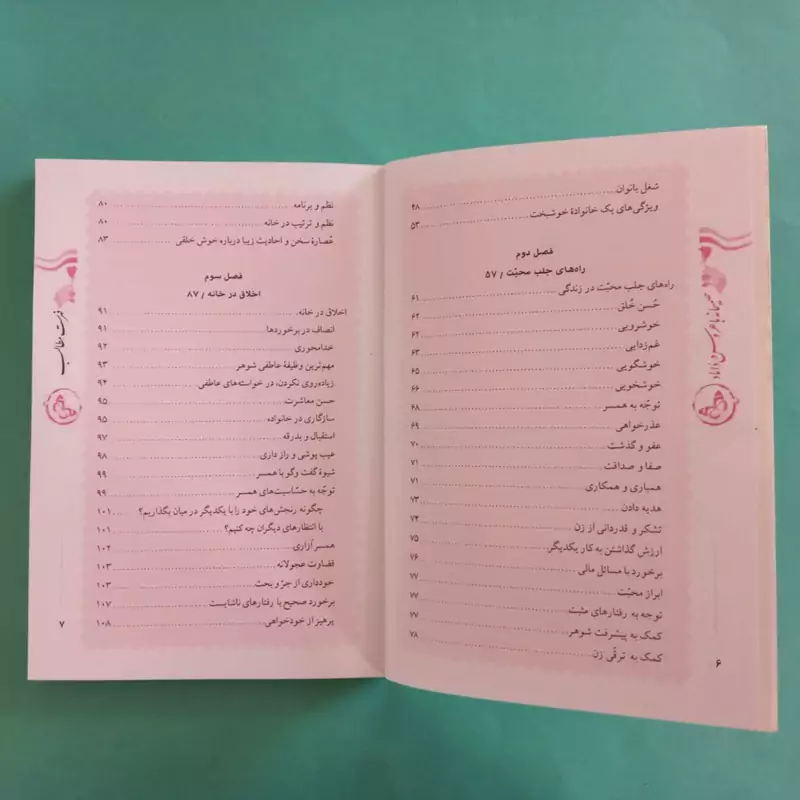 شغل بانوان ۴۸
ویژگی‌های یک خانوادهٔ خوشبخت ۵۳
فصل دوم
راه‌های جلب محبّت / ۵۷
راه‌های جلب محبّت در زندگی ۶۱
حُسن خُلق ۶۲
خوشرویی ۶۲
غم‌زدایی ۶۳
خوشگویی ۶۵
خوشخویی ۶۶
توجّه به همسر ۶۸
عذرخواهی ۶۹
عفو و گذشت ۷۰
صفا و صداقت ۷۱
همیاری و همکاری ۷۱
هدیه دادن ۷۳
تشکر و قدردانی از زن ۷۴
ارزش گذاشتن به کار یکدیگر ۷۵
برخورد با مسائل مالی ۷۶
ابراز محبّت ۷۷
توجه به رفتارهای مثبت ۷۷
کمک به پیشرفت شوهر ۷۷
کمک به ترقّی زن ۷۸
صمیمانه با عروس و داماد
۶
نظم و برنامه ۸۰
نظم و ترتیب در خانه ۸۰
عُصارهٔ سخن و احادیث زیبا درباره خوش خلقی ۸۳
فصل سوم
اخلاق در خانه / ۸۷
اخلاق در خانه ۹۱
انصاف در برخوردها ۹۱
خدامحوری ۹۲
مهم‌ترین وظیفهٔ عاطفی شوهر ۹۳
زیاده‌روی نکردن، در خواسته‌های عاطفی ۹۴
حسن معاشرت ۹۵
سازگاری در خانواده ۹۵
استقبال و بدرقه ۹۷
عیب پوشی و راز داری ۹۸
شیوهٔ گفت وگو با همسر ۹۹
توجّه به حسّاسیت‌های همسر ۹۹
چگونه رنجش‌های خود را با یکدیگر در میان بگذاریم؟ ۱۰۱
با انتظارهای دیگران چه کنیم؟ ۱۰۱
همسر آزاری ۱۰۲
قضاوت عجولانه ۱۰۳
خودداری از جرّ و بحث ۱۰۳
برخورد صحیح با رفتارهای ناشایست ۱۰۷
پرهیز از خودخواهی ۱۰۸
فهرست مطالب
۷